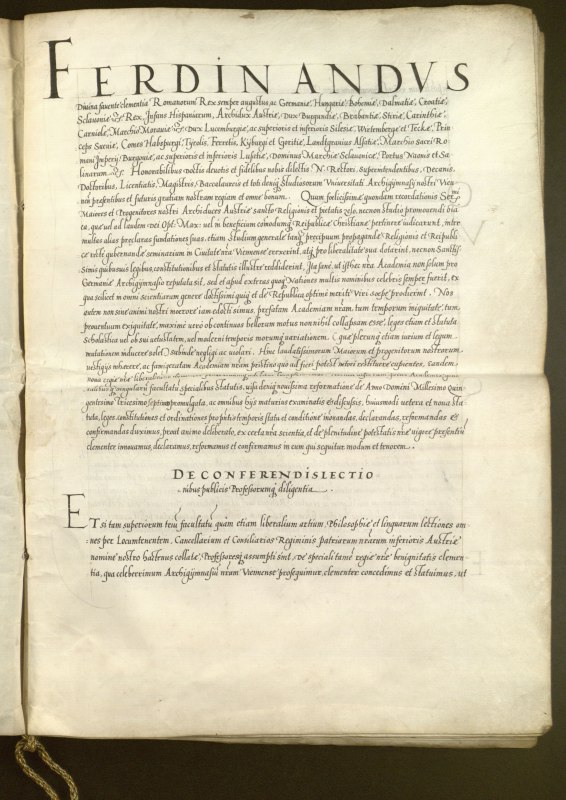 FERDINANDVS
Diuina fauente clementia Romanorum Rex semper augustus, ac Germanię, Hungarię, Bohemię, Dalmatię, Croatię,
Sclauonię &c. Rex, Infans Hispaniarum, Archidux Austrię, Dux Burgundię, Brabantię, Stirię, Carinthię,
Carniolę, Marchio Morauię &c. Dux Lucemburgię, ac superioris et inferioris Silesię, Wirtembergę et Teckę, Prin
ceps Sueuię, Comes Habspurgi, Tyrolis, Ferretis, Kyburgi et Goritię, Landtgrauius Alsatię, Marchio Sacri Ro
mani Imperij Burgouię, ac superioris et inferioris Lusatię, Dominus Marchię Sclauonicę, Portus Naonis et Sa
linarum &c. Honorabilibus doctis deuotis et fidelibus nobis dilectis N. Rectori, Superintendentibus, Decanis,
Doctoribus, Licentiatis, Magistris, Baccalaureis et toti deniq Studiosorum Vniuersitati Archigymnasij nostri Vien
nen presentibus et futuris gratiam nostram regiam et omne bonum. Quum foelicissimę quondam recordationis Sermi
Maiores et Progenitores nostri Archiduces Austrię sancto Religionis et pietatis zelo, necnon Studio promouendi ea
ta, quę vel ad laudem Dei Opt. Max: vel in beneficium comodumq Reipublicę Christianę pertinere iudicarunt, inter
multas alias pręclaras fundationes suas, etiam Studium generale tanq pręcipuum propagandę Religionis et Reipubli
cę recte gubernandę seminarium in Ciuitate nra Viennense erexerint, atq pro liberalitate sua dotarint, necnon Sanctis
simis quibusuis legibus, constitutionibus et statutis illustre reddiderint, Ita sane, ut isthęc nra Academia non solum pro
Germanię Archigymnasio reputata sit, sed et apud exteras quoq Nationes multis nominibus celebris semper fuerit, ex
qua scilicet in omni scientiarum genere doctissimi quiq et de Republica optime meriti viri soepe prodierint. Nos
autem non sine animi nostri moerore iam elapsis annis, prefatam Academiam nram, tum temporum iniquitate, tum
prouentuum exiguitate, maxime uero ob continuos bellorum motus nonnihil collapsam esse, leges etiam et statuta
Scholastica uel ob sui uetustatem, uel moderni temporis morumq uariationem (quę plerunq etiam rerum et legum
mutationem inducere solet) subinde negligi ac uiolari. Hinc laudatissimorum Maiorum et progenitorum nostrorum
uestigijs inhęrere, ac famigeratam Academiam nram pristino quo ad fieri potest nitori restituere cupientes, eandem
nona regię nrę liberalitatis
natibus q singularum facultatum specialibus statutis, iussu deniq nouissima reformatione de Anno Domini Millesimo Quin
gentesimo Tricesimo septimo promulgata, ac omnibus his maturius examinatis et discussis, huiusmodi uetera et noua sta
tuta, leges, constitutiones et ordinationes pro ipsius temporis statu et conditione innouandas, declarandas, reformandas et
confirmandas duximus, prout animo deliberato, ex certa nra scientia, et de plenitudine potestatis nrę vigore presentium
clementer innouamus, declaramus, reformamus et confirmamus in eum qui sequitur modum et tenorem.
DE CONFERENDIS LECTIO
nibus publicis Professorumq diligentia
ETsi tam superiorum trium facultatum quam etiam liberalium artium, Philosophię et linguarum lectiones om
nes per Locumtenentem, Cancellarium et Consiliarios Regiminis patriarum nrarum inferioris Austrię
nomine nostro hactenus collatę, Professoresq assumpti sint, De speciali tamen regię nrę benignitatis clemen
tia, qua celeberrimum Archigymnasium nrum Viennense prosequimur, clementer concedimus et statuimus, ut